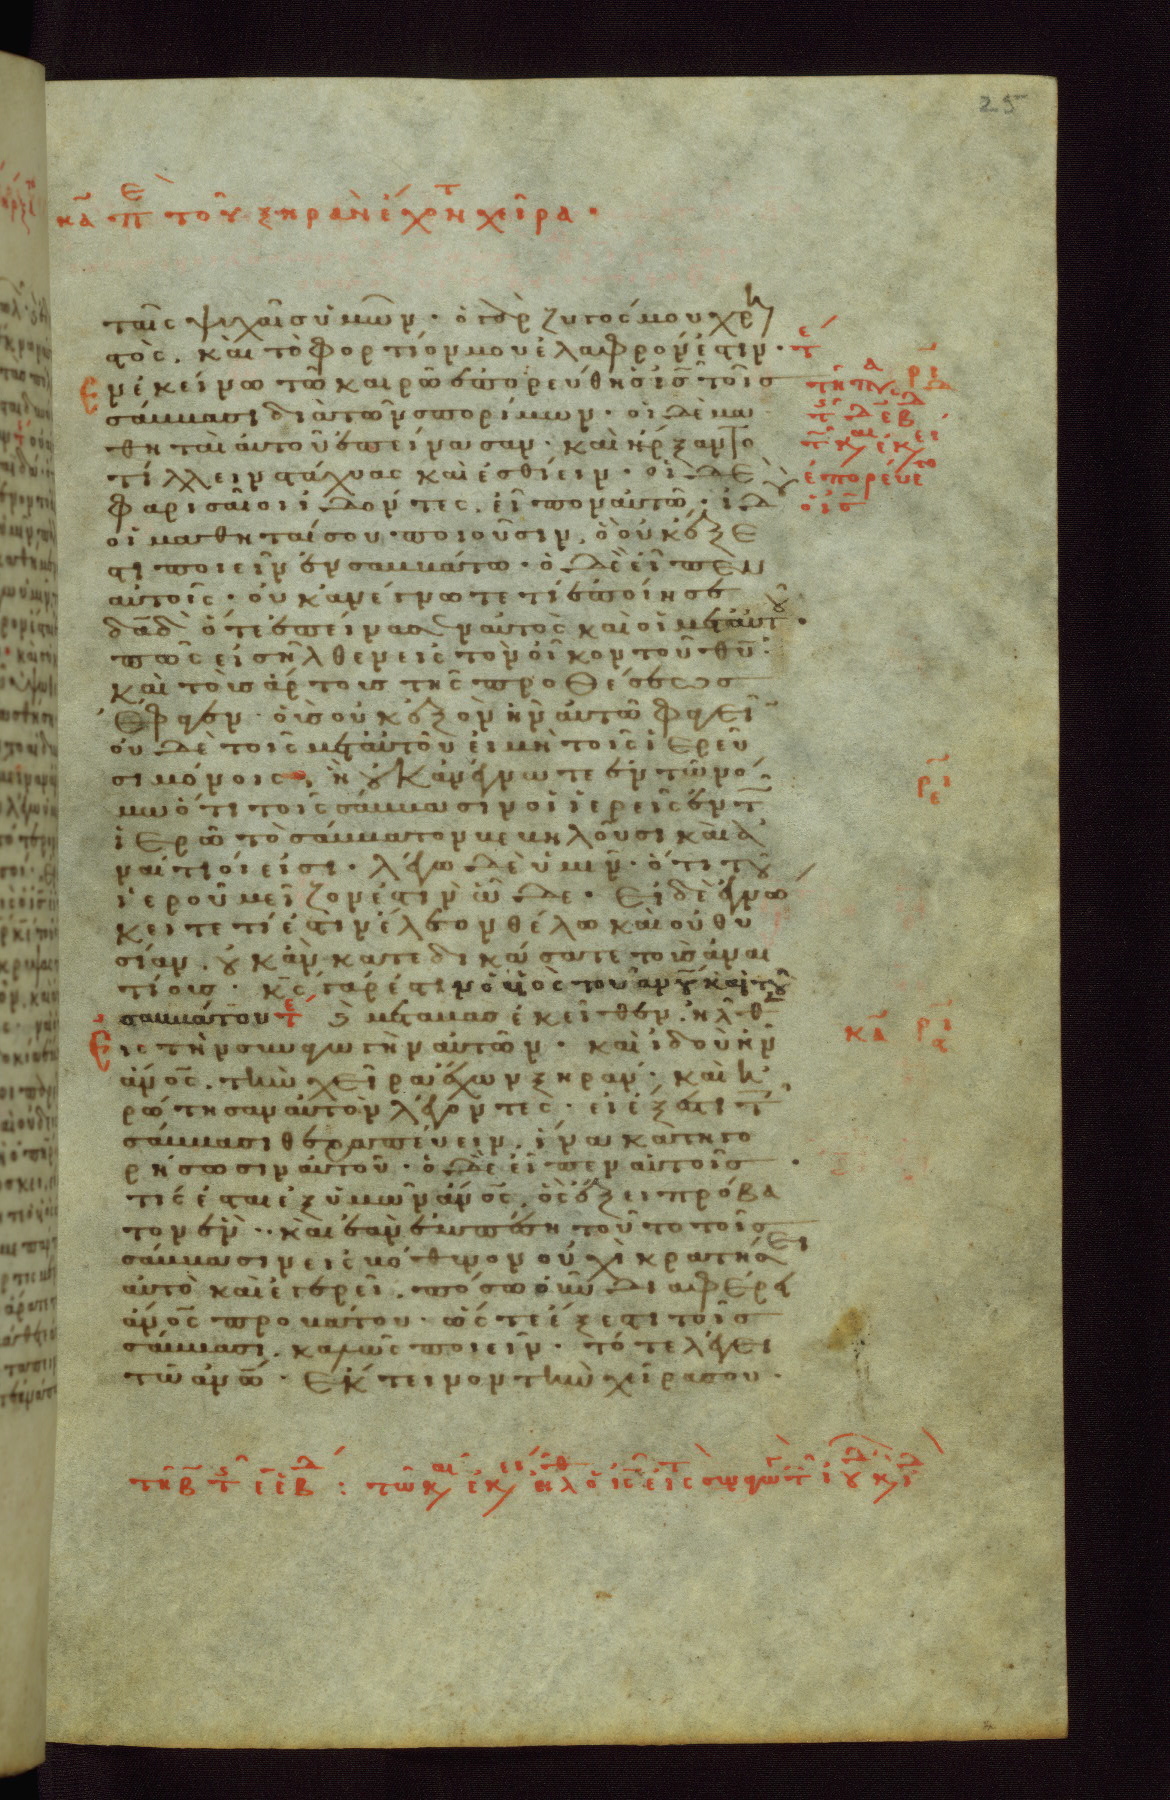 25
κα πε του ξηρὰν ἔχοντ χεῖρα.
ταῖς ψυχαῖς ὑμῶν. ὁ γὰρ ζυγός μου χρη
στὸς. καὶ τὸ φορτίον μου ἐλαφρόν ἐστιν. τε
Εν ἐκείνω τῶ καιρῶ ἐπορεύθη ὁ ις τοῖς
σάββασι διὰ τῶν σπορίμων. οἱ δὲ μα
θηταὶ αὐτοῦ ἐπείνασαν. καὶ ἤρξαντο
τίλλειν στάχυας καὶ ἐσθίειν. οἱ δὲ
φαρισαῖοι ἰδόντες. εἶπον αὐτῶ. ἰδου
οἱ μαθηταί σου ποιοῦσιν, ὃ οὐκ ἔξε
στι ποιεῖν ἐν σαββάτω. ὁ δὲ εἶπεν
αὐτοῖς. οὐκ ἀνέγνωτε τί ἐποίησε
δαδ ὅτε ἐπείνασεν αὐτὸς καὶ οἱ μετ αὐτου.
πῶς εἰσῆλθεν εἰς τὸν οἶκον τοῦ θυ.
καὶ τοὺς ἄρτους τῆς προθέσεως
ἔφαγεν. οἷς οὐκ ἐξὸν ἦν αὐτῶ φαγεῖν
οὐδὲ τοῖς μετ αὐτοῦ εἰ μὴ τοῖς ἱερεῦ
σι μόνοις. ἢ οὐκ ἀνέγνωτε ἐν τῶ νό
μω ὅτι τοῖς σάββασιν οἱ ἱερεῖς ἐν τω
ἱερῶ τὸ σάββατον βεβηλοῦσι καὶ ἀ
ναίτιοί εἰσι. λέγω δὲ ὑμῖν. ὅτι τοῦ
ἱεροῦ μεῖζόν ἐστιν ὧδε. Εἰ δὲ ἐγνώ
κειτε τί ἐστιν ἔλεον θέλω καὶ οὐ θυ
σίαν. οὐκ ἂν κατεδικάσατε τοὺς ἀναι
τίους. κς γάρ ἐστιν ὁ υἱὸς τοῦ ανου καὶ του
σαββάτου τε μεταβὰς ἐκεῖθεν. ἦλθεν
εἰς τὴν συναγωγὴν αὐτῶν. καὶ ἰδοὺ ἦν
ἄνος. τὴν χεῖρα ἔχων ξηράν. καὶ ἐπη
ρώτησαν αὐτὸν λέγοντες. εἰ ἔξεστι τοις
σάββασι θεραπεύειν. ἵνα κατηγο
ρήσωσιν αὐτοῦ. ὁ δὲ εἶπεν αὐτοῖς
τίς ἔσται ἐξ ὑμῶν ἄνος. ὃς ἕξει πρόβα
τον ἓν. καὶ ἐὰν ἐμπέση τοῦτο τοῖς
σάββασιν εἰς βόθυνον οὐχὶ κρατήσει
αὐτὸ καὶ ἐγερεῖ. πόσω οὖν διαφέρει
ἄνος προβάτου. ὥστε ἔξεστι τοῖς
σάββασι. καλῶς ποιεῖν. τότε λέγει
τῶ ανω. Ἔκτεινον τὴν χεῖρα σου.